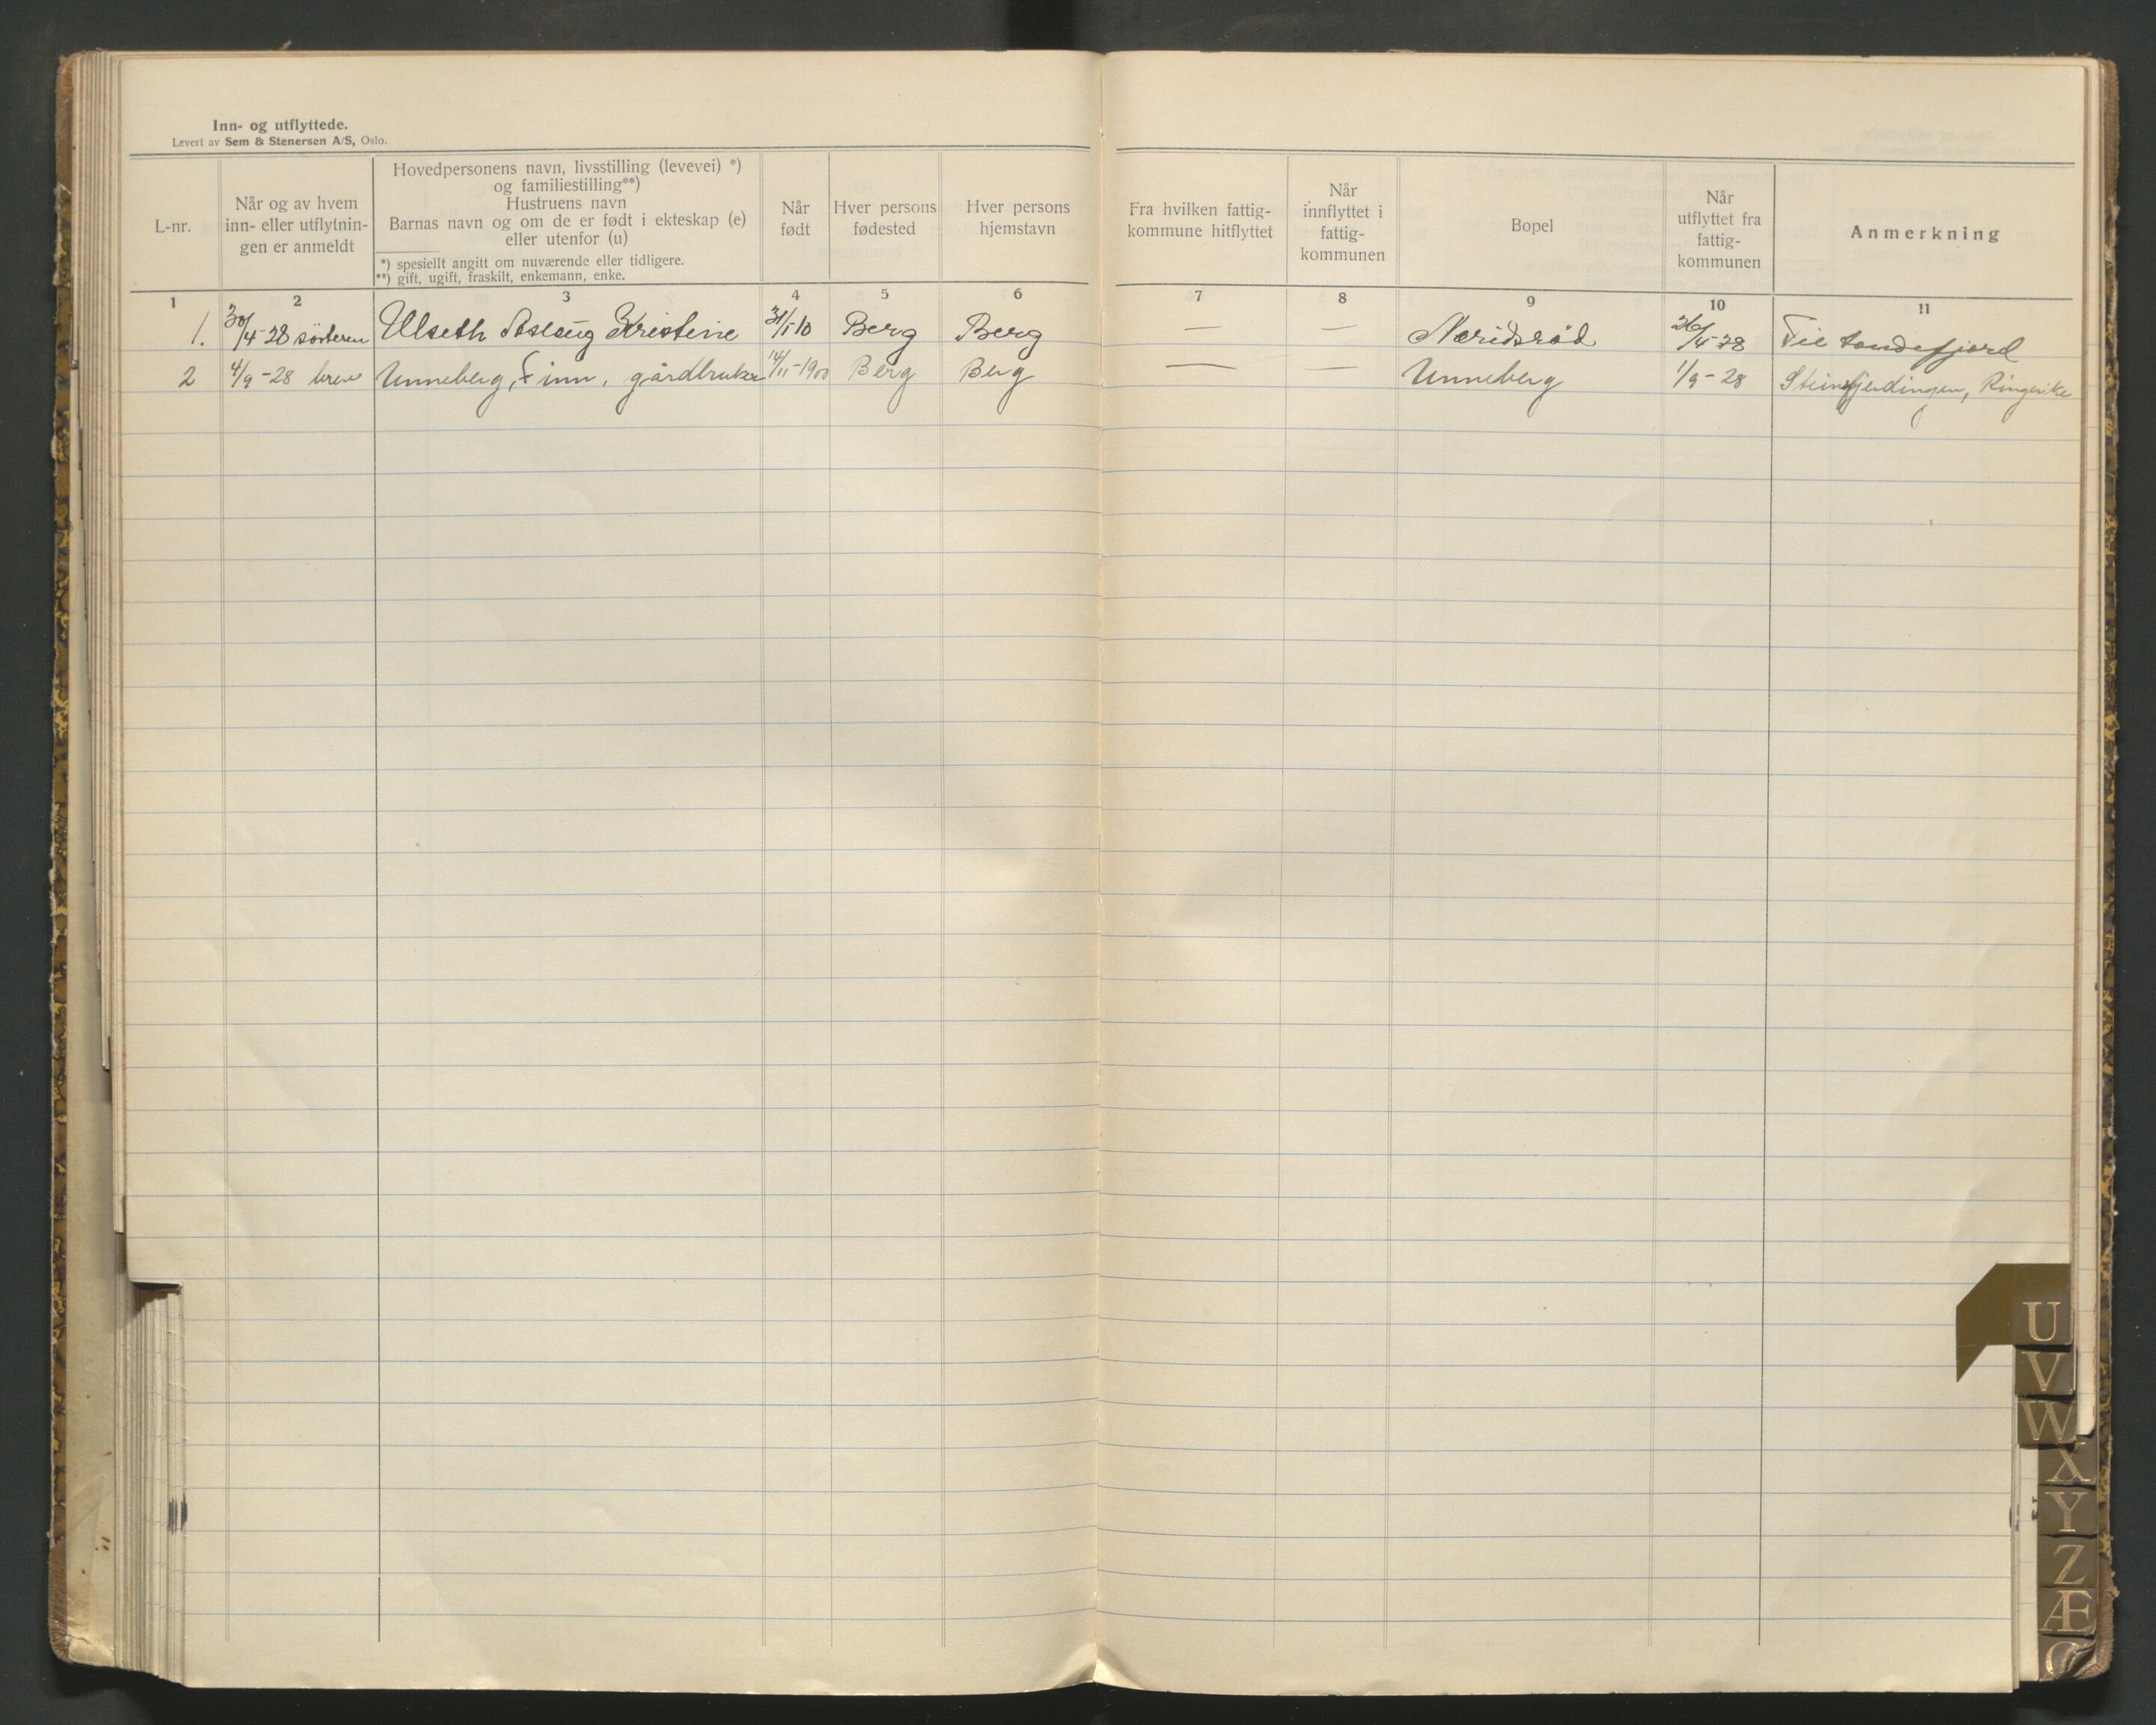 Inn- og utflyttede.
Levert av Sem & Stenersen A/S, Oslo.
L-nr.
Når og av hvem
inn- eller utflytnin-
gen er anmeldt
Hovedpersonens navn, livsstilling (levevei) *)
og familiestilling**)
Hustruens navn
Barnas navn og om de er født i ekteskap (e)
eller utenfor (u)
*) spesiellt angitt om nuværende eller tidligere.
**) gift, ugift, fraskilt, enkemann, enke.
Når
født
Hver persons
fødested
Hver persons
hjemstavn
Fra hvilken fattig-
kommune hitflyttet
Når
innflyttet i
fattig-
kommunen
Bopel
Når
utflyttet fra
fattig-
kommunen
Anmerkning
1 2 3 4 5 6 7 8 9 10 11
1. 30/4-28 Ulseth Aslaug Kristine 31/1-10 Berg Berg — — 26/4-28 Til Sandefjord
2 4/9-28 brev Unneberg, Finn, gårdbruker 14/11-1900 Berg Berg — — Unneberg 1/9-28 Steinsfjerdingen, Ringerike
U
V
W
X
Y
Z
Æ